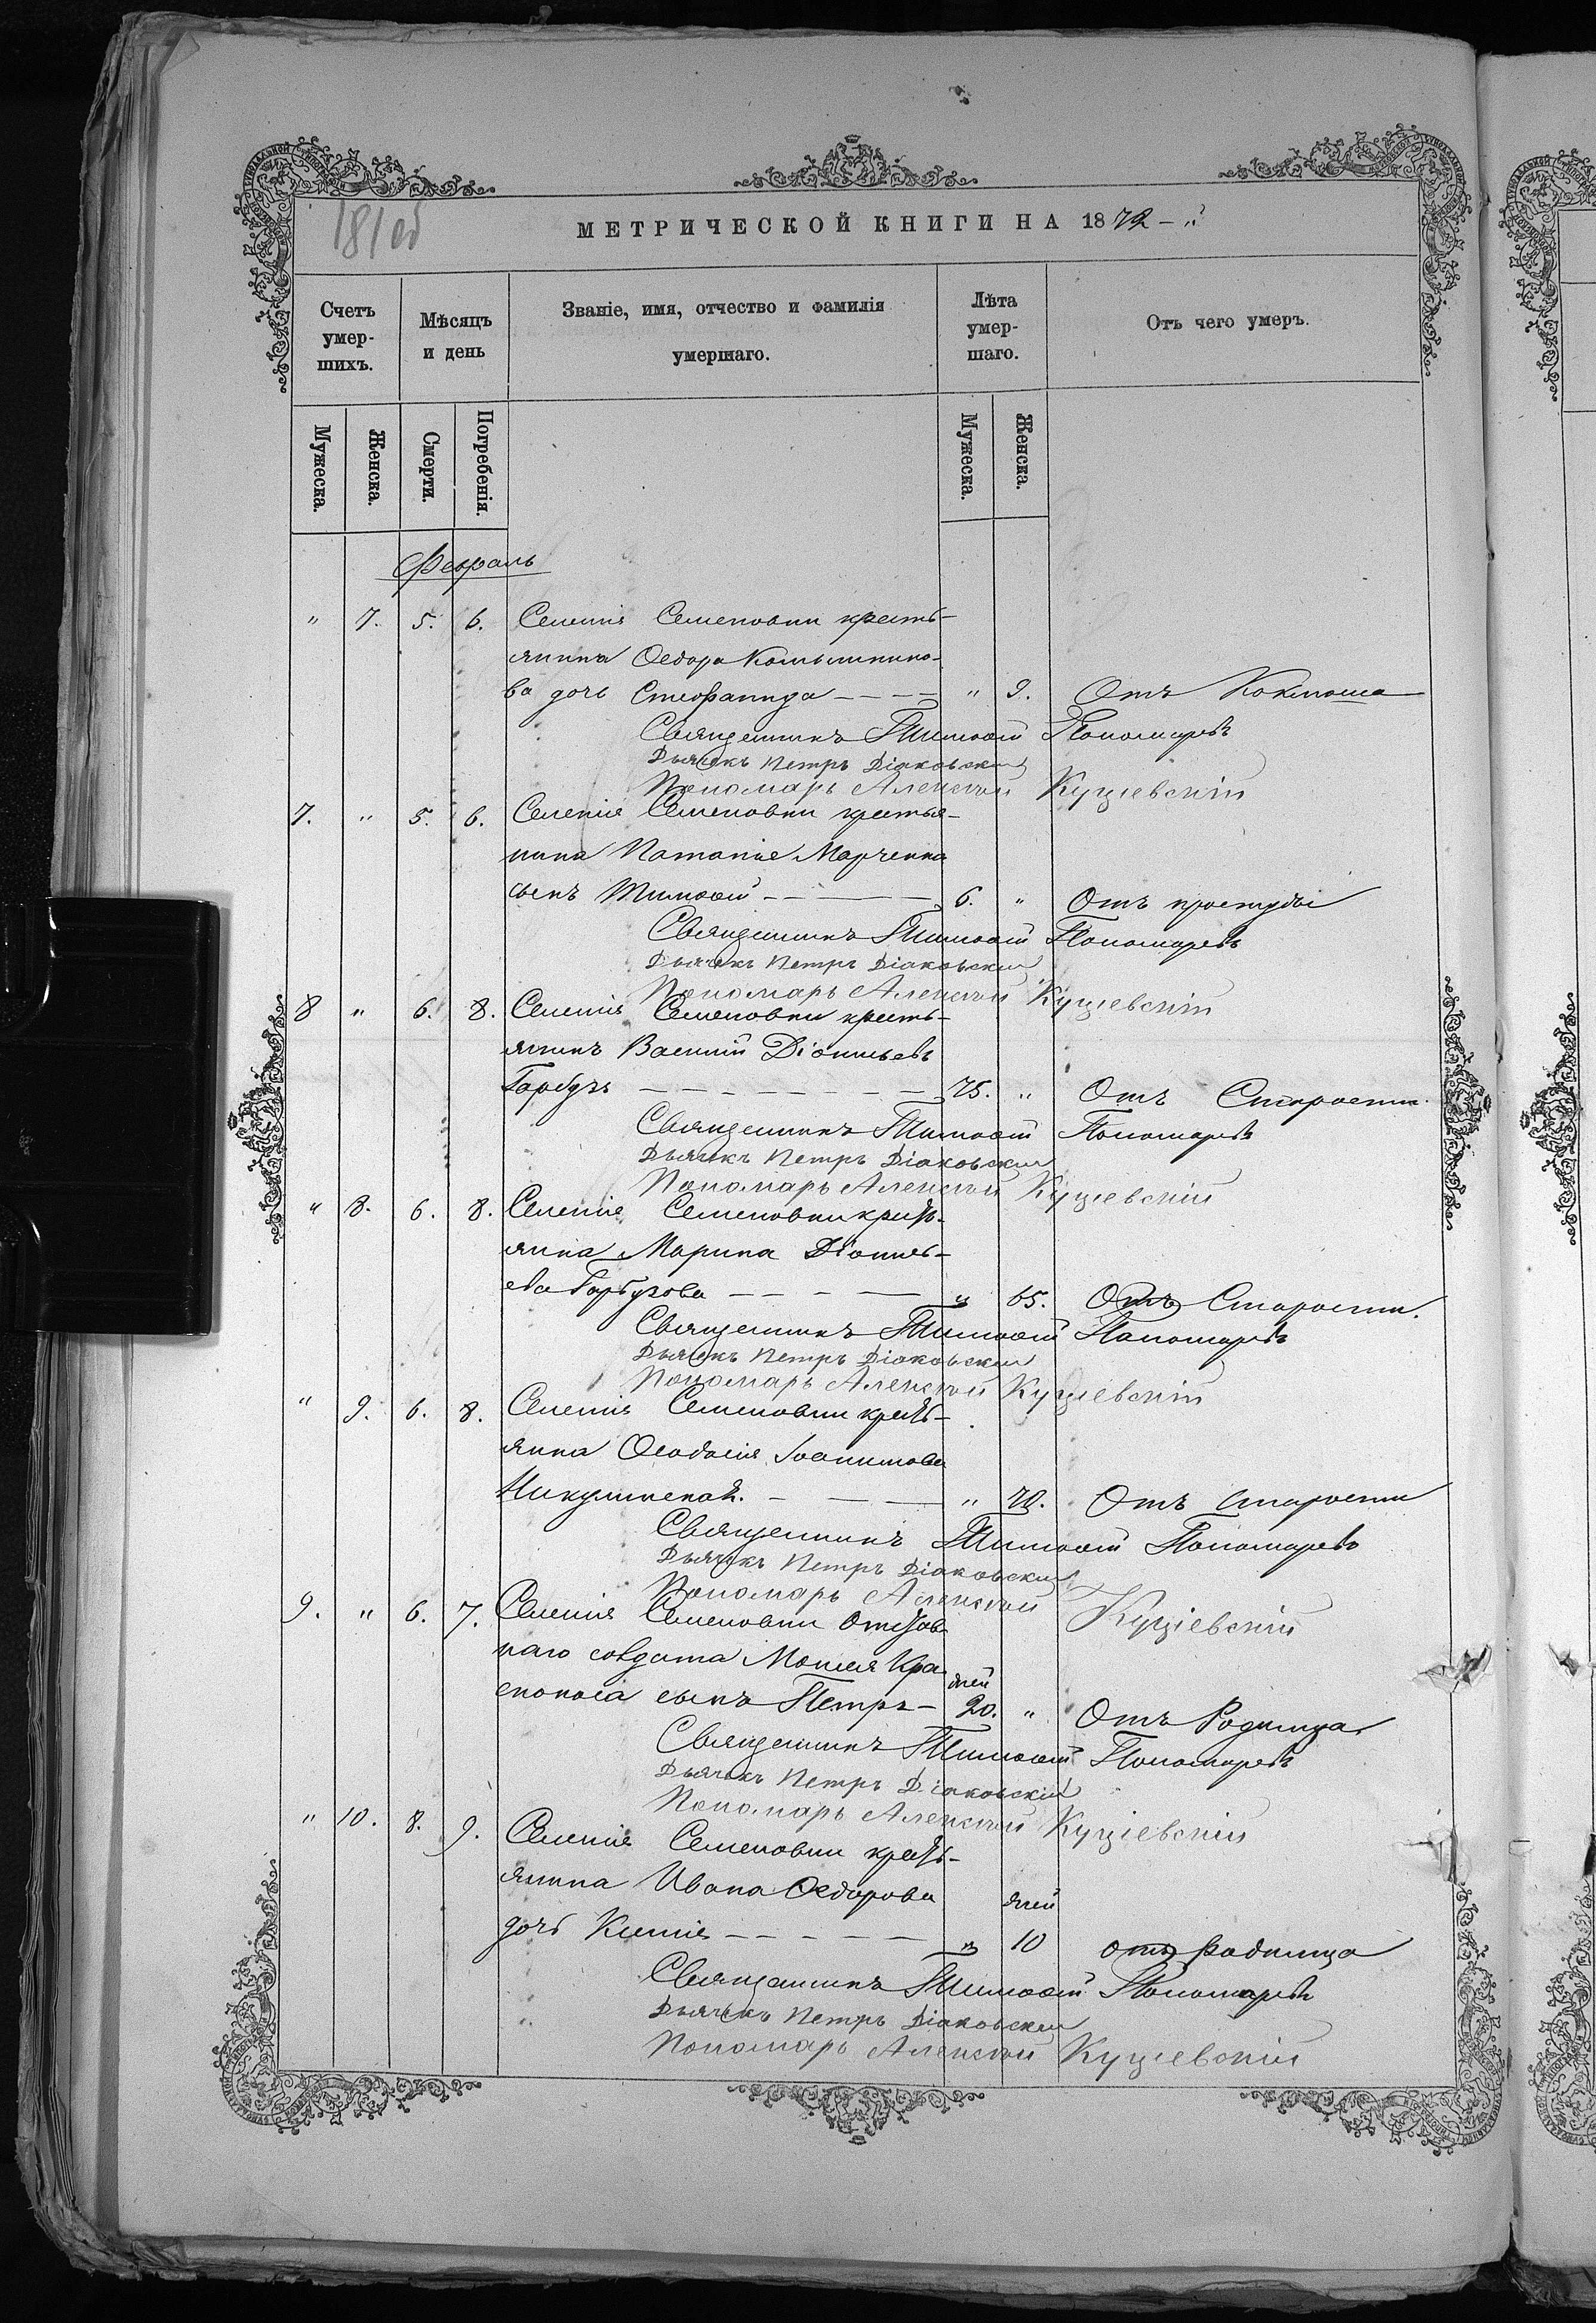 181об
МЕТРИЧЕСКОЙ КНИГИ НА 1872 - й
Счетъ умершихъ. Мѣсяцъ и день Званіе, имя, отчество и фамилія умершаго. Лѣта умершаго. Отъ чего умеръ.
Мужеска. Женска. Смерти. Погребенія. Мужеска. Женска.
Февраль
" 7. 5. 6. Селенія Семеновки кресть-
янина Ѳедора
ва дочь Стефанида - - - " 9. Отъ Коклюша
Священникъ Тимоѳей Пономаревъ
Дьячекъ Петръ Діаковскій
Пономарь Алексѣй Кущевскій
7. " 5. 6. Селенія Семеновки крестья-
нина Потапія Марченка
сынъ Тимоѳей - - - 6. " Отъ простуды
Священникъ Тимоѳей Пономаревъ
Дьячекъ Петръ Діаковскій
Пономарь Алексѣй Кущевскій
8 " 6. 8. Селенія Семеновки кресть-
янинъ Василій Діонисьевъ
Гарбузъ - - - 75. " Отъ Старости.
Священникъ Тимоѳей Пономаревъ
Дьячекъ Петръ Діаковскій
Пономарь Алексѣй Кущевскій
" 8. 6. 8. Селенія Семеновки кресть-
янка Марина Діонись-
ева Гарбузова - - - " 65. Отъ Старости.
Священникъ Тимоѳей Пономаревъ
Дьячекъ Петръ Діаковскій
Пономарь Алексѣй Кущевскій
" 9. 6. 8. Селенія Семеновки кресть-
янка Ѳеодосія
" 70. Отъ старости
Священникъ Тимоѳей Пономаревъ
Дьячекъ Петръ Діаковскій
Пономарь Алексѣй Кущевскій
9. " 6. 7. Селенія Семеновки
наго солдата Моисея Кра
сынъ Петръ - дней 20. " Отъ Родимца
Священникъ Тимоѳей Пономаревъ
Дьячекъ Петръ Діаковскій
Пономарь Алексѣй Кущевскій
" 10. 8. 9. Селенія Семеновки кресть-
янина Ивана Ѳедорова дней
дочь Ксенія - - - " 10 отъ родимца
Священникъ Тимоѳей Пономаревъ
Дьячекъ Петръ Діаковскій
Пономарь Алексѣй Кущевскій